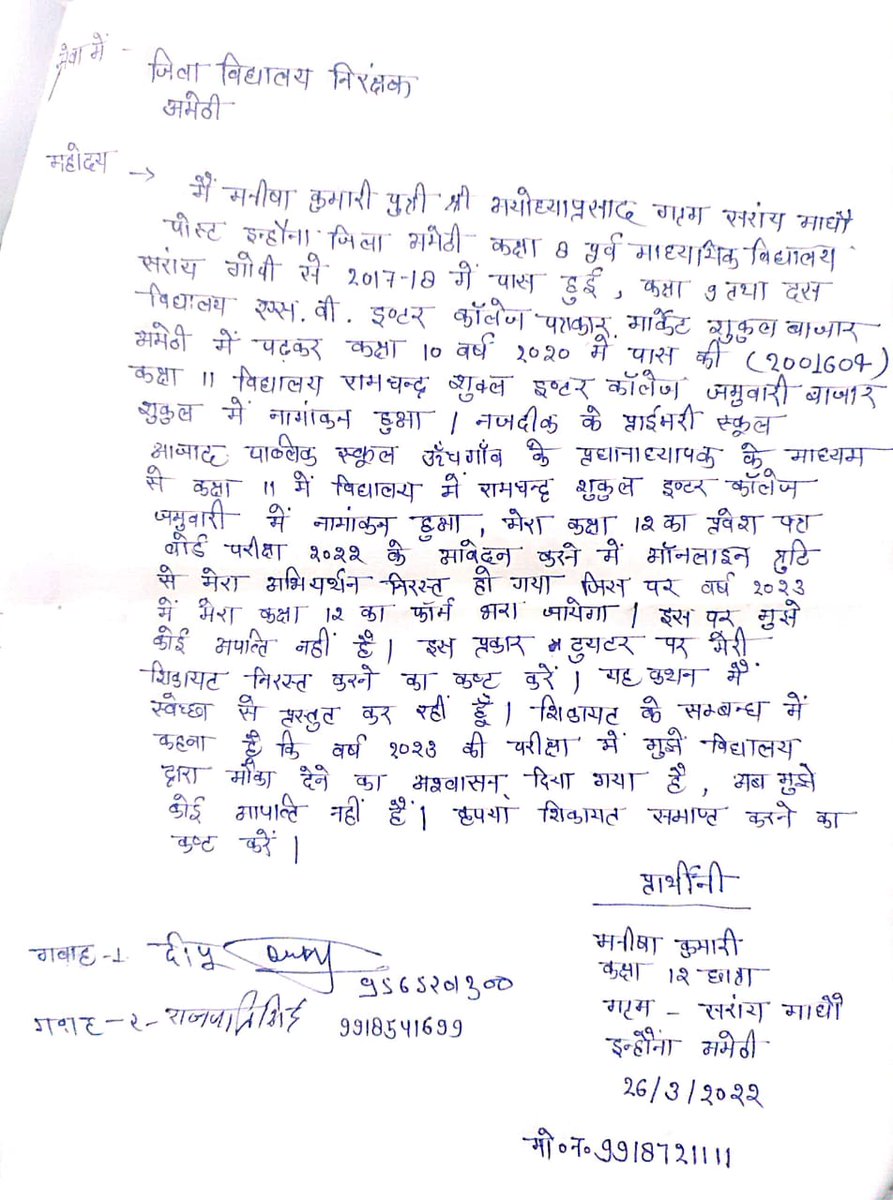 सेवा में -
जिला विद्यालय निरंक्षक
अमेठी
महोदय →
मैं मनीषा कुमारी पुत्री श्री अयोध्याप्रसाद ग्राम सरांय माधौ
पोस्ट इन्हौना जिला अमेठी कक्षा 8 पूर्व माध्यमिक विद्यालय
सरांय गोपी से 2017-18 में पास हुई, कक्षा 9 तथा दस
विद्यालय एस. वी. इण्टर कॉलेज पत्राकार मार्केट शुकुल बाजार
अमेठी में पढ़कर कक्षा 10 वर्ष 2020 में पास की (2001604)
कक्षा 11 विद्यालय रामचन्द्र शुक्ल इण्टर कॉलेज जमुवारी बाजार
शुकुल में नामांकन हुआ। नजदीक के प्राईमरी स्कूल
आजाद पाब्लिक स्कूल ऊँचगाँव के प्रधानाध्यापक के माध्यम
से कक्षा 11 में विद्यालय में रामचन्द्र शुकुल इण्टर कॉलेज
जमुवारी में नामांकन हुआ, मेरा कक्षा 12 का प्रवेश पत्र
बोर्ड परीक्षा 2022 के आवेदन करने में ऑनलाइन त्रुटि
से मेरा अभियर्थन निरस्त हो गया जिस पर वर्ष 2023
में मेरा कक्षा 12 का फॉर्म भरा जायेगा। इस पर मुझे
कोई अपात्ति नहीं हैं। इस प्रकार ट्युटर पर मेरी
शिकायत निरस्त करने का कष्ट करें। यह कथन मैं
स्वेच्छा से प्रस्तुत कर रहीं हूँ। शिकायत के सम्बन्ध में
कहना है कि वर्ष 2023 की परीक्षा में मुझें विद्यालय
द्वारा मौका देने का अश्वासन दिया गया है, अब मुझे
कोई आपात्ति नहीं हैं। कृपया शिकायत समाप्त करने का
कष्ट करें।
प्रार्थीनी
मनीषा कुमारी
कक्षा 12 छात्रा
ग्राम - सरांय माधौ
इन्हौना अमेठी
26/3/2022
मो०न० 9918721111
गवाह-1 दीपू
9565201300
गवाह-2-
9918541699